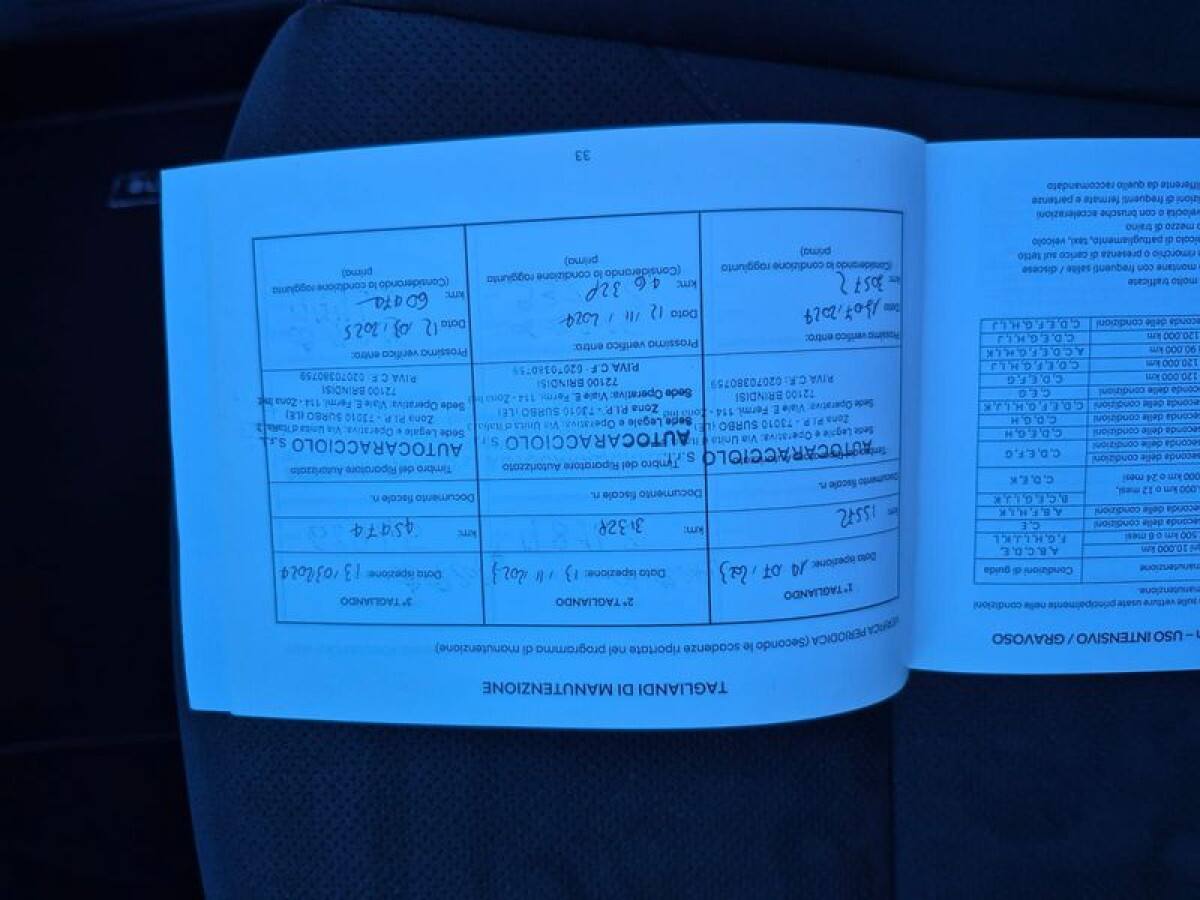 TAGLIANDI DI MANUTENZIONE
VERIFICA PERIODICA (Secondo le scadenze riportate nel programma di manutenzione)
1° TAGLIANDO
Data ispezione: 14.07.2023
km: 15572
Documento fiscale n.
Timbro del Riparatore Autorizzato
AUTOCARACCIOLO S.r.l.
Sede Legale e Operativa: Via Unità d'Italia
Zona P.I.P. - 73010 SURBO (LE)
Sede Operativa: Viale E. Fermi, 114 - Zona Ind.
72100 BRINDISI
P.IVA C.F.: 02070380759
Prossima verifica entro:
Data 13.07.2024
km: 30572
(Considerando la condizione raggiunta
prima)
2° TAGLIANDO
Data ispezione: 13.11.2023
km: 31328
Documento fiscale n.
Timbro del Riparatore Autorizzato
AUTOCARACCIOLO S.r.l.
Sede Legale e Operativa: Via Unità d'Italia
Zona P.I.P. - 73010 SURBO (LE)
Sede Operativa: Viale E. Fermi, 114 - Zona Ind.
72100 BRINDISI
P.IVA C.F.: 02070380759
Prossima verifica entro:
Data 12.11.2024
km: 46328
(Considerando la condizione raggiunta
prima)
3° TAGLIANDO
Data ispezione: 13.03.2024
km: 45474
Documento fiscale n.
Timbro del Riparatore Autorizzato
AUTOCARACCIOLO S.r.l.
Sede Legale e Operativa: Via Unità d'Italia, 3
Zona P.I.P. - 73010 SURBO (LE)
Sede Operativa: Viale E. Fermi, 114 - Zona Ind.
72100 BRINDISI
P.IVA C.F.: 02070380759
Prossima verifica entro:
Data 12.03.2025
km: 60474
(Considerando la condizione raggiunta
prima)
33
– USO INTENSIVO / GRAVOSO
sulle vetture usate principalmente nelle condizioni
manutenzione.
manutenzione
Condizioni di guida
10.000 km
A, B, C, D, E,
500 km o 6 mesi
F, G, H, I, J, K, L
delle condizioni
C, E
delle condizioni
A, B, F, H, I, K
000 km o 12 mesi,
B, C, E, G, I, J, K
000 km o 24 mesi
C, D, E, K
delle condizioni
C, D, E, F, G
delle condizioni
C, D, G, H
delle condizioni
C, D, G, H
delle condizioni
C, D, E, F, G, H, I, J, K
delle condizioni
C, E, G
120.000 km
C, D, E, F, G
120.000 km
C, D, E, F, G, H, I, J
90.000 km
A, C, D, E, F, G, H, I, K
120.000 km
C, D, E, G, H, I, J
delle condizioni
C, D, E, F, G, H, I, J
molto trafficate
montane con frequenti salite / discese
rimorchio o presenza di carico sul tetto
veicolo di pattugliamento, taxi, veicolo
mezzo di traino
velocità o con brusche accelerazioni
condizioni di frequenti fermate e partenze
differente da quello raccomandato